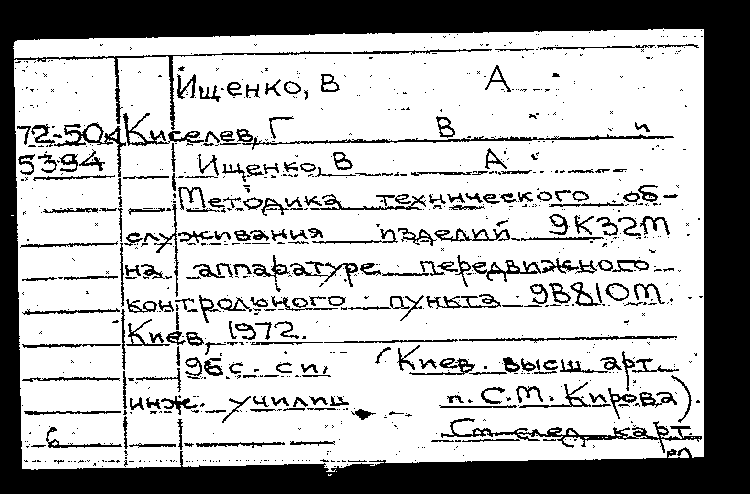 Ищенко, В А
72-50к Киселев, Г В и
5394 Ищенко, В А
Методика технического об-
служивания изделий 9К32М
на аппаратуре передвижного
контрольного пункта 9В810М.
Киев, 1972.
96 с. с ил. (Киев. высш арт.
инж. училищ п. С.М. Кирова).
6 См след карт